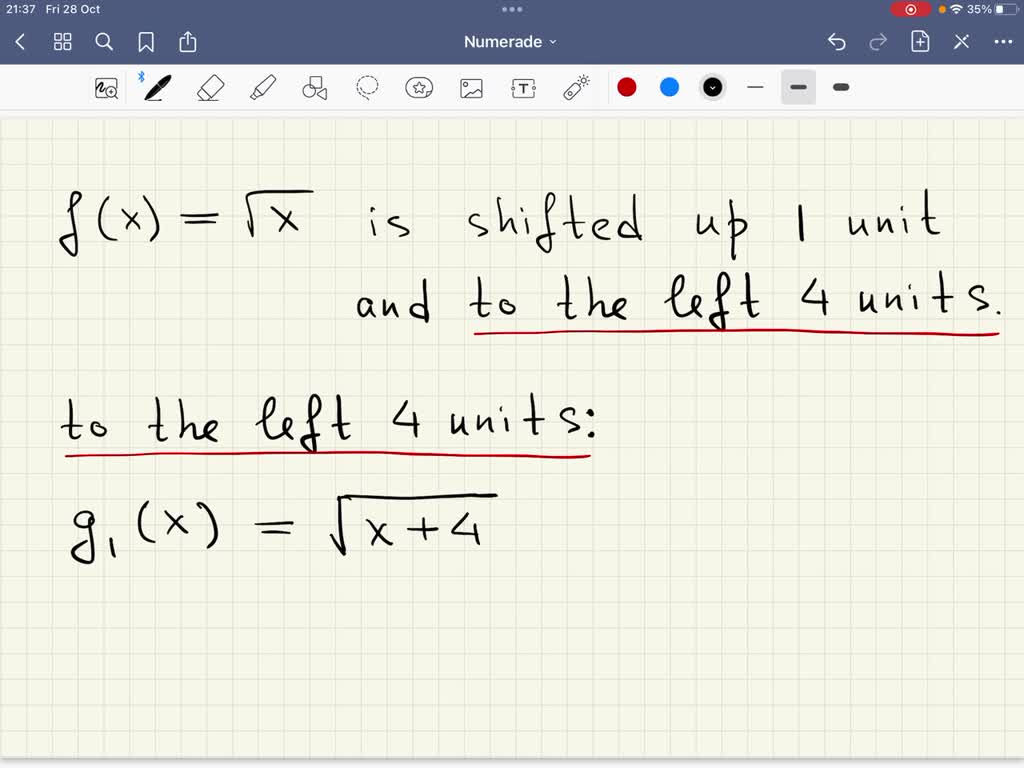 21:37 Fri 28 Oct 35%
Numerade
T
f(x) = √x is shifted up 1 unit
and to the left 4 units.
to the left 4 units:
g₁(x) = √(x+4)